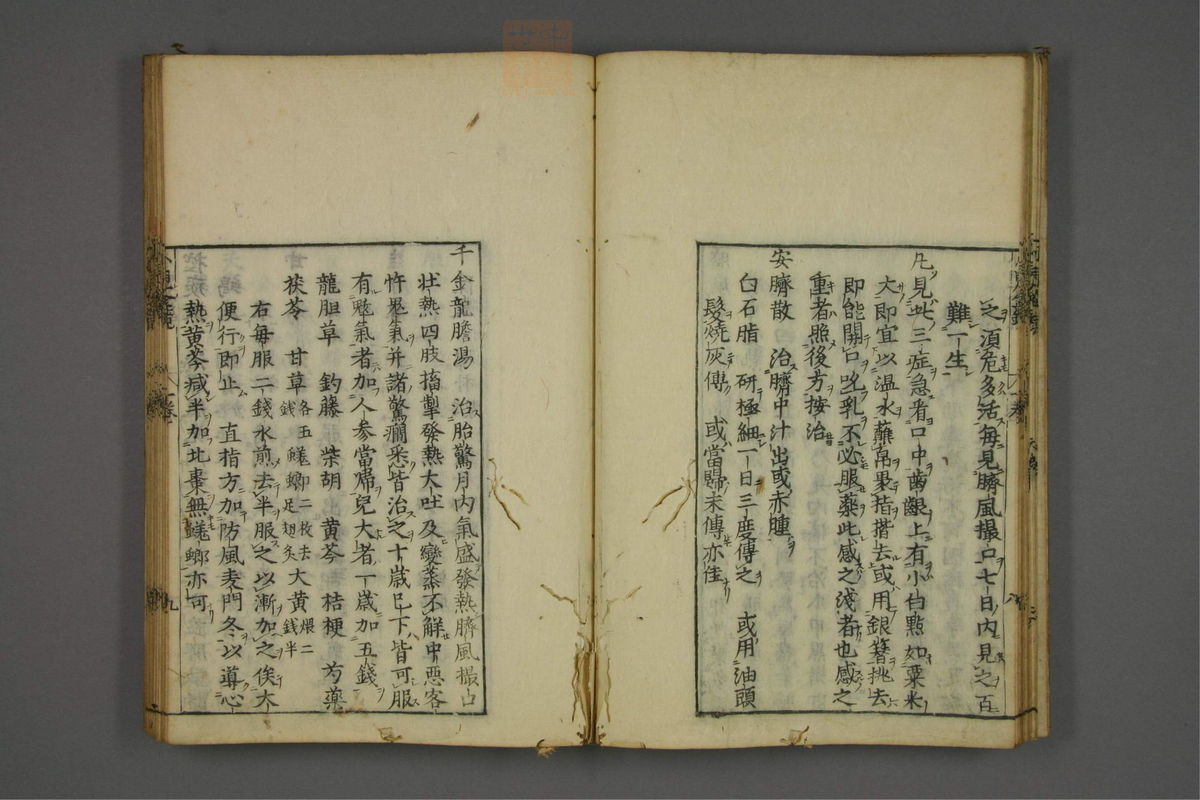 之湏危多活每見臍風撮口七日内見之百
難一生
凡見此三症急看口中齒齦上有小白點如粟米
大即宜以温水蘸帛裹指揩去或用銀簪挑去
即能開口吮乳不必服藥此感之淺者也感之
重者照後方按治
安臍散 治臍中汁出或赤腫
白石脂 研極細一日三度傅之 或用油頭
髮燒灰傅 或當歸末傅亦佳
千金龍膽湯 治胎驚月内氣盛發熱臍風撮口
壮熱四肢搐掣發熱大吐及變蒸不解中惡客
忤鬼氣并諸驚癇悉皆治之十歳已下皆可服
有魃氣者加人参當帰兒大者一歳加五錢
龍胆草 釣藤 柴胡 黄芩 桔梗 芍藥
茯苓 甘草各五錢 蜣螂二枚去足翅炙 大黄煨二錢半
右毎服二錢水煎去半服之以漸加之俟大
便行即止 直指方加防風麦門冬以導心
熱黄芩减半加北棗無蜣螂亦可